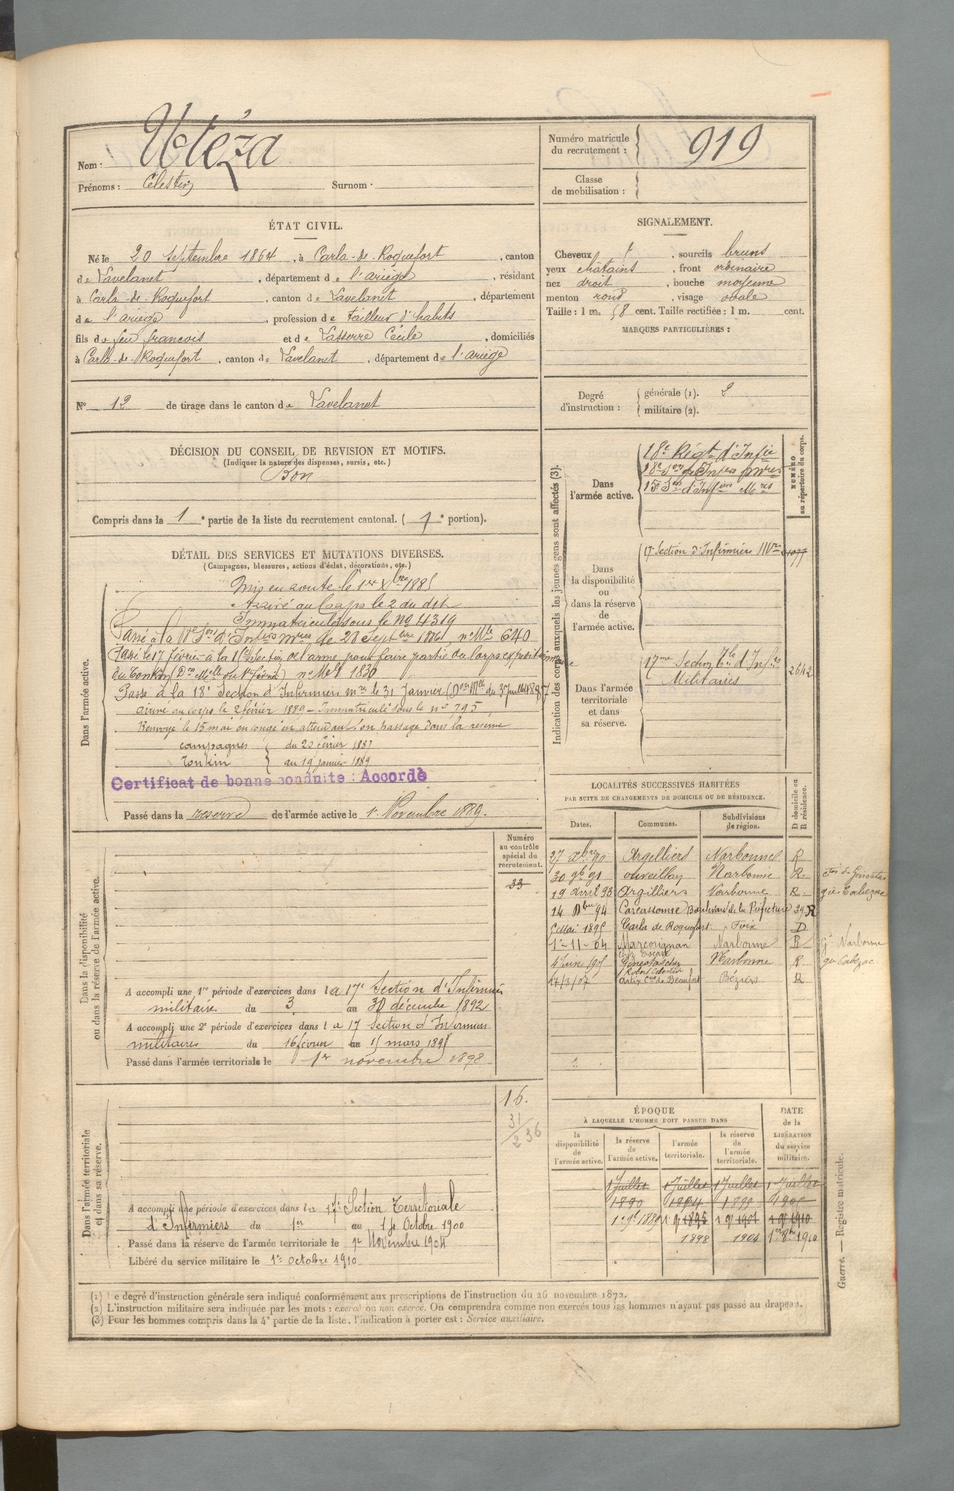 Nom : Utéza
Prénoms : Célestin Surnom :
Numéro matricule du recrutement : 919
Classe de mobilisation :
ÉTAT CIVIL.
Né le 20 septembre 1864, à Carla-de-Roquefort, canton
de Lavelanet, département de l'ariège, résidant
à Carla-de-Roquefort, canton de Lavelanet, département
de l'ariège, profession de tailleur d'habits
fils de feu francois et de Lasserre Cécile, domiciliés
à Carla-de-Roquefort, canton de Lavelanet, département de l'ariège
SIGNALEMENT.
Cheveux , sourcils bruns
yeux châtains, front ordinaire
nez droit, bouche moyenne
menton rond, visage ovale
Taille : 1 m. 58 cent. Taille rectifiée : 1 m. cent.
MARQUES PARTICULIÈRES :
N° 12 de tirage dans le canton de Lavelanet
Degré d'instruction : générale (1). 2
militaire (2).
DÉCISION DU CONSEIL DE REVISION ET MOTIFS.
(Indiquer la nature des dispenses, sursis, etc.)
Bon
Compris dans la 1e partie de la liste du recrutement cantonal. ( 1e portion).
DÉTAIL DES SERVICES ET MUTATIONS DIVERSES.
(Campagnes, blessures, actions d'éclat, décorations, etc.)
Dans l'armée active.
Mis en route le 1er Xbre 1885
Arrivé au Corps le 2 du dit
Immatriculé sous le No 4319
Passé à la d'Infres Mres le 28 Septbre 1886 n° Mle 640
Passé le 17 février à la section de l'arme pour faire partie du corps
du Tonkin n° Mle 1830
Passé à la 18e Section d'Infirmiers Mres le 31 Janvier
arrivé au corps le 2 février 1889 - Immatriculé sous le n° 795
Renvoyé le 15 mai en congé en attendant son passage dans la réserve
campagnes du 20 février 1887
Tonkin au 19 janvier 1889
Certificat de bonne conduite : Accordé
Passé dans la reserve de l'armée active le 1er Novembre 1889.
Indication des corps auxquels les jeunes gens sont affectés (3).
NUMÉRO au répertoire du corps.
Dans l'armée active.
18e Régt d'Infie
18e Son d'Infres Mres
15e Son d'Infres Mres
Dans la disponibilité ou dans la réserve de l'armée active.
17 Section d'Infirmiers Mres
Dans l'armée territoriale et dans sa réserve.
17me Section Tle d'Infres Militaires 2642
LOCALITÉS SUCCESSIVES HABITÉES
PAR SUITE DE CHANGEMENTS DE DOMICILE OU DE RÉSIDENCE.
Dates. Communes. Subdivisions de région. D domicile ou R résidence.
27 90 Argelliers Narbonne R
30 9b 91 ouveillan Narbonne R
19 avril 93 Argilliers Narbonne R
14 Dbre 94 Carcassonne Boulevard de la Préfecture 39 R
5 Mai 1895 Carla de Roquefort Foix D
1-11-04 Marcorignan Narbonne R
4 Juin 1905 Narbonne R
Béziers R
gie Cabezac
Narbonne
Cabezac
Dans la disponibilité ou dans la réserve de l'armée active.
Numéro au contrôle spécial du recrutement.
33
A accompli une 1re période d'exercices dans la 17e Section d'Infirmiers
militaires du 3 au 30 décembre 1892
A accompli une 2e période d'exercices dans la 17 Section d'Infirmiers
militaires du 16 février au 15 mars 1895
Passé dans l'armée territoriale le 1er novembre 1898
Dans l'armée territoriale et dans sa réserve.
16.
31
236
A accompli une période d'exercices dans la 17e Section Territoriale
d'Infirmiers du 1er au 14 Octobre 1900
Passé dans la réserve de l'armée territoriale le 1er Novembre 1904
Libéré du service militaire le 1er Octobre 1910
ÉPOQUE
À LAQUELLE L'HOMME DOIT PASSER DANS
la disponibilité de l'armée active. la réserve de l'armée active. l'armée territoriale. la réserve de l'armée territoriale. DATE de la LIBÉRATION du service militaire.
1 Juillet 1 Juillet 1 Juillet 1 Juillet
1890
1898 1904 1910
(1) Le degré d'instruction générale sera indiqué conformément aux prescriptions de l'instruction du 26 novembre 1872.
(2) L'instruction militaire sera indiquée par les mots : exercé ou non exercé. On comprendra comme non exercés tous les hommes n'ayant pas passé au drapeau.
(3) Pour les hommes compris dans la 4e partie de la liste, l'indication à porter est : Service auxiliaire.
Guerre. — Registre matricule.